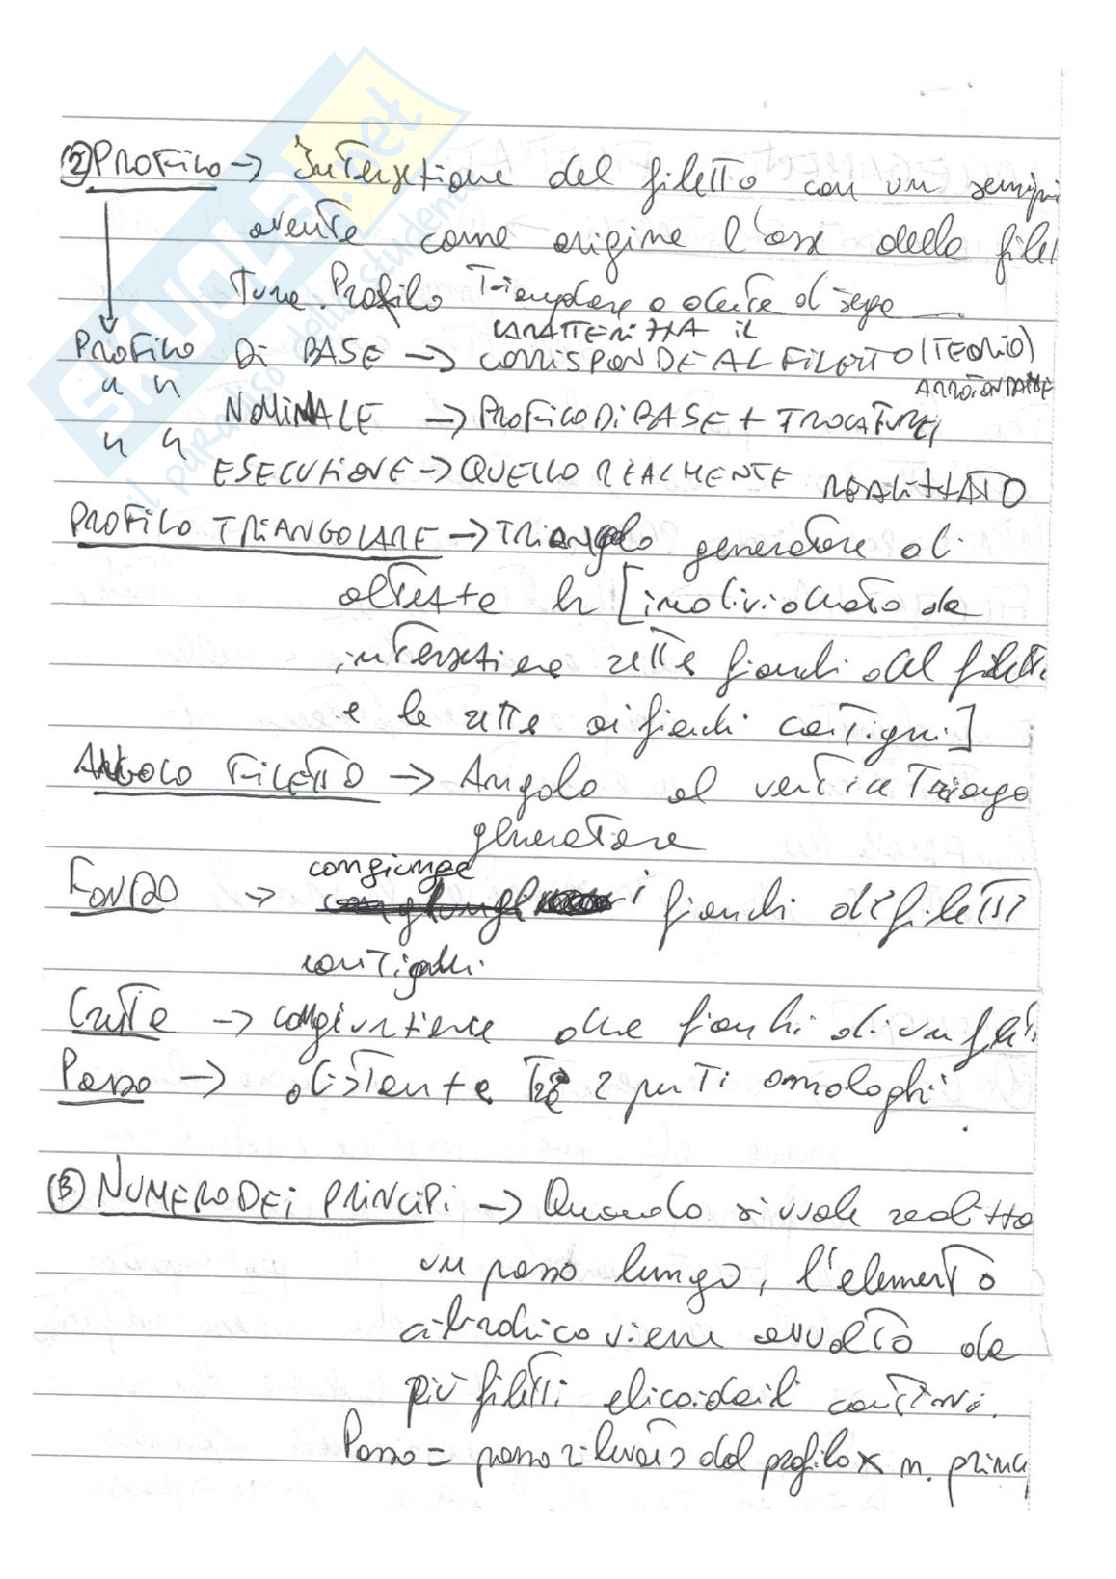 ② PROFILO → Intersezione del filetto con un semipi
avente come origine l'asse della filet
tura. Profilo Triangolare o dente di sega
CARATTERIZZA IL
PROFILO DI BASE → CORRISPONDE AL FILETTO (TEORICO)
ARROTONDATE
" " NOMINALE → PROFILO DI BASE + TRONCATURE
" " ESECUZIONE → QUELLO REALMENTE REALIZZATO
PROFILO TRIANGOLARE → TRIANGolo generatore di
altezza h [individuato da
intersezione rette fianchi del filetto
e le rette ai fianchi contigui]
ANGOLO FILETTO → Angolo al vertice Triango
generatore
congiunge
FONDO → i fianchi di filetti
contigui.
Cresta → congiunzione due fianchi di un filet
Passo → distanza Tra 2 punti omologhi.
③ NUMERO DEI PRINCIPI → Quando si vuole realizza
un passo lungo, l'elemento
cilindrico viene avvolto da
più filetti elicoidali continui.
Passo = passo rilevato dal profilo x n. princi